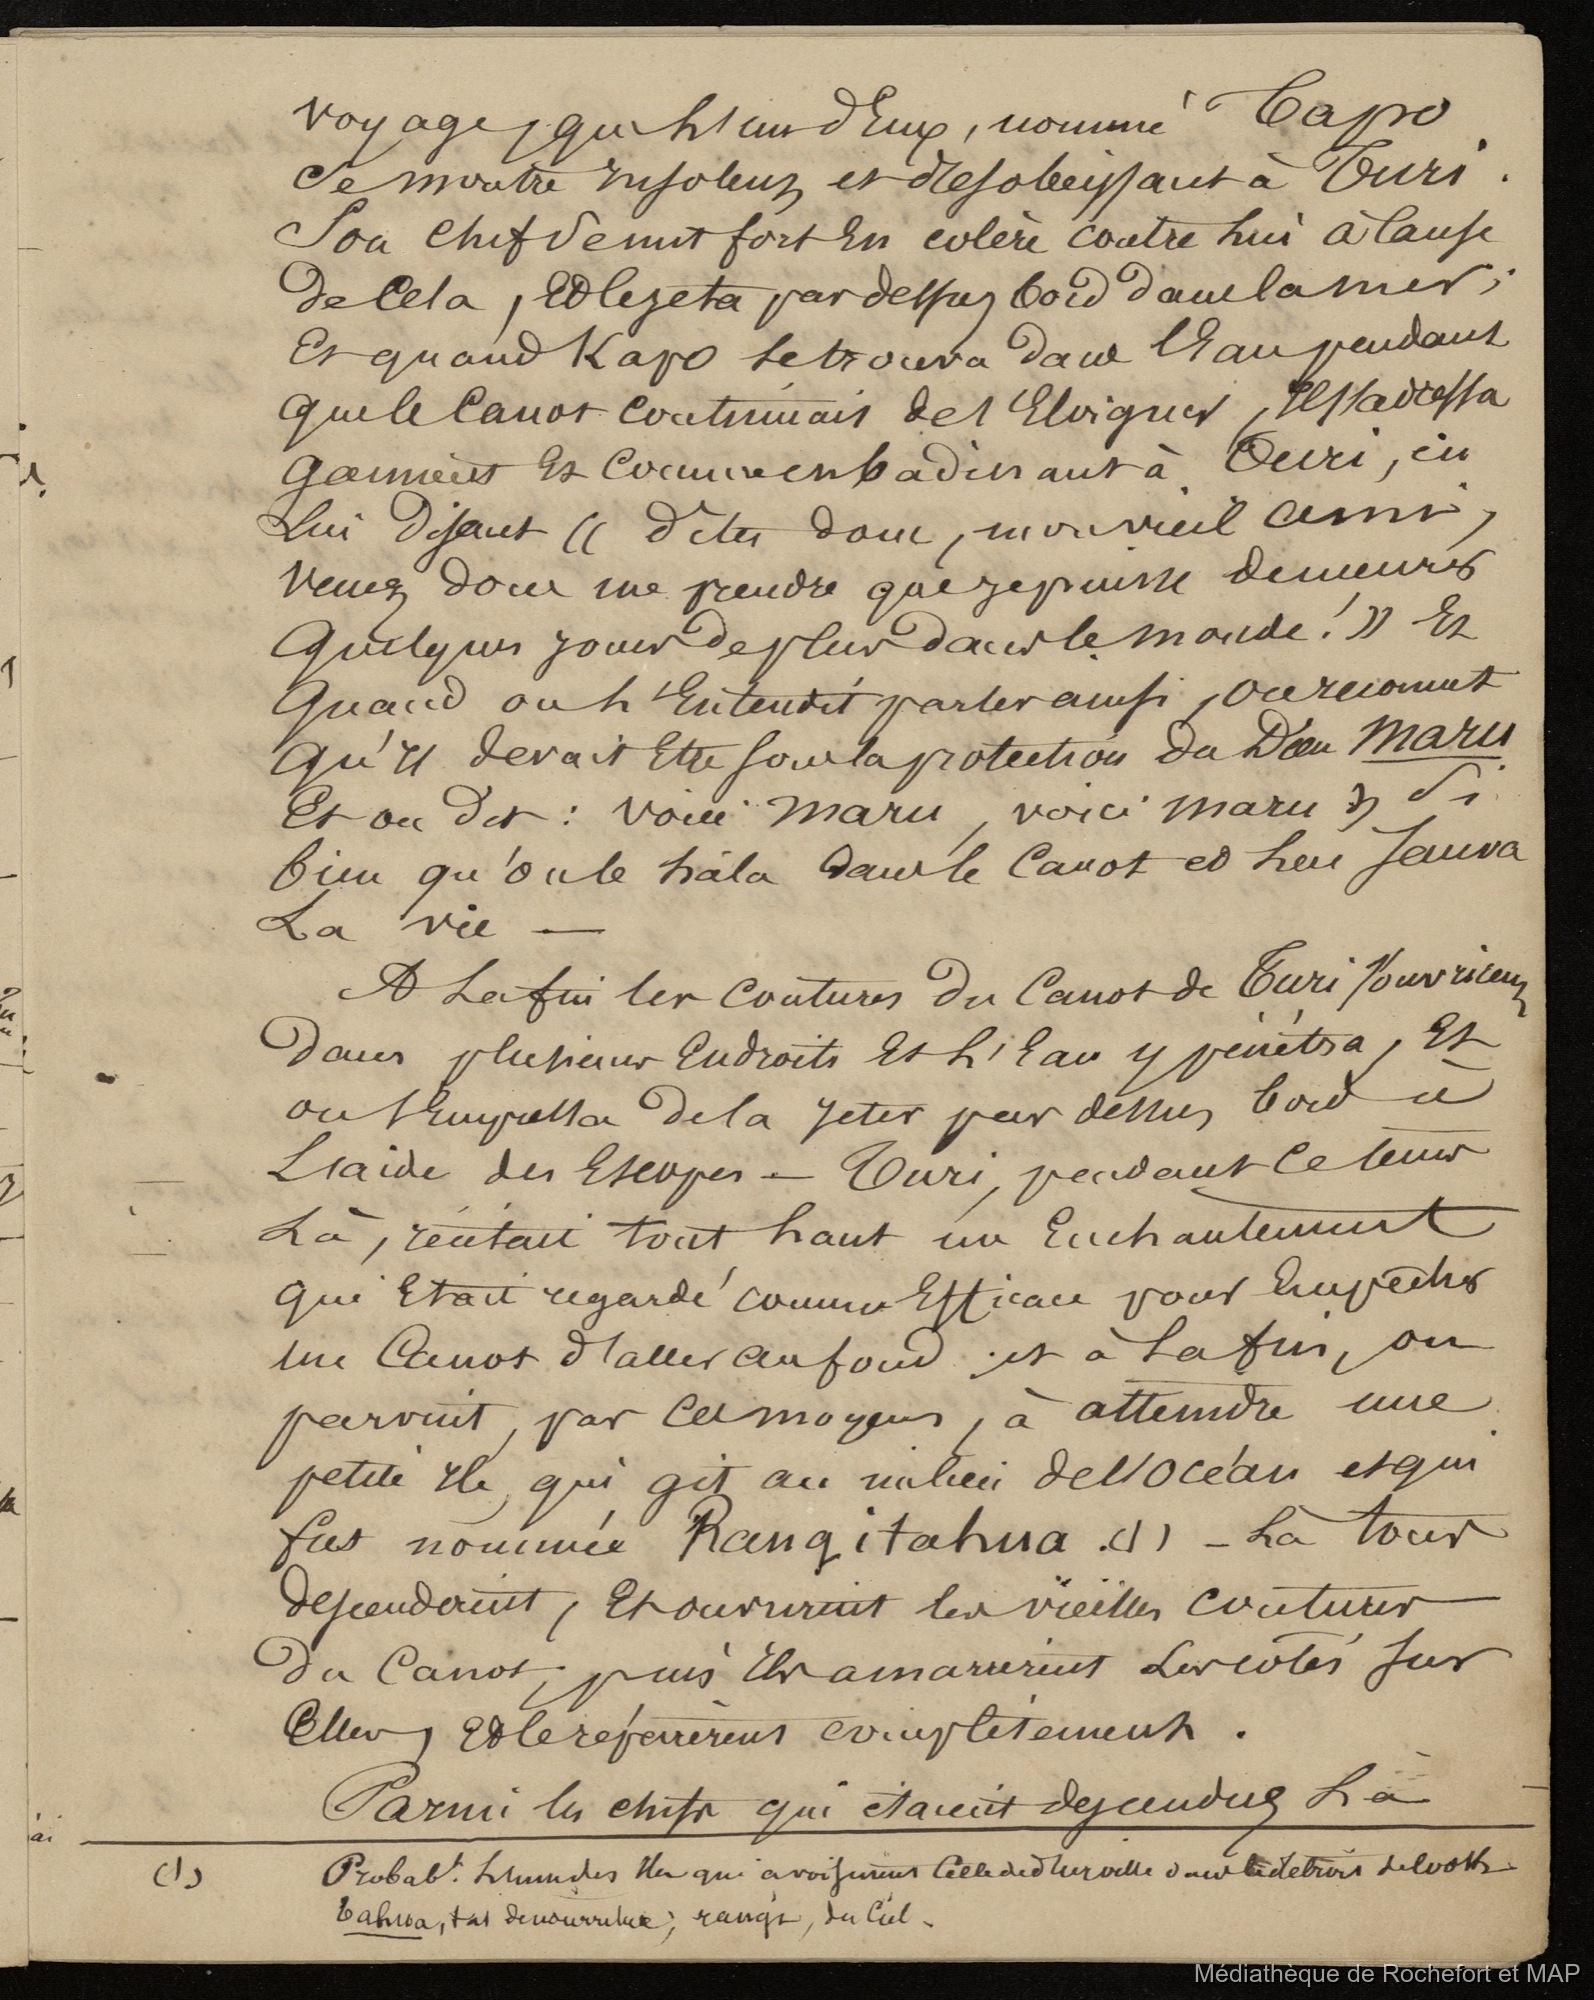 voyage, que l'un d'Eux, nommé Tapo
se montre insolent et désobéissant à Turi.
Son Chef devint fort En colère contre lui à cause
de Cela, Et le jeta par dessus bord dans la mer;
Et quand Kapo se trouva dans l'Eau pendant
que le Canot continuait de s'Eloigner, Il s'adressa
gaiment Et comme en badinant à Turi, en
Lui disant (( dites donc, mon vieil ami,
Venez donc me prendre que je puisse demeurer
Quelques jours de plus dans le monde! )) Et
Quand on l'Entendit parler ainsi, on reconnut
Qu'Il devait Etre sous la protection du Dieu Maru
Et on dit : voici Maru, voici Maru )) Si
bien qu'on le hâla dans le Canot et lui sauva
La vie —
A La fin les coutures du Canot de Turi s'ouvrirent
Dans plusieurs Endroits Et l'Eau y pénétra, Et
on s'Empressa de la jeter par dessus bord à
L'aide des Escopes — Turi, pendant Ce tems
Là, récitait tout haut un Enchantement
qui Etait regardé comme Efficace pour Empêcher
un Canot d'aller au fond ; et à La fin, on
parvint, par ces moyens, à atteindre une
petite Ile, qui git au milieu de l'Océan et qui
fut nommée Rangitahua (1) – Là tous
descendirent, Et ouvrirent les vieilles coutures
du Canot, puis Ils amarrèrent Les côtés sur
Elles, Et le réparèrent complètement.
Parmi les chefs qui étaient descendus Là
(1) Probabt. L'une des Iles qui avoisinent Celle de d'Urville dans le détroit de Cook
Tahua, tas de nourriture; rangi, du Ciel.
Médiathèque de Rochefort et MAP